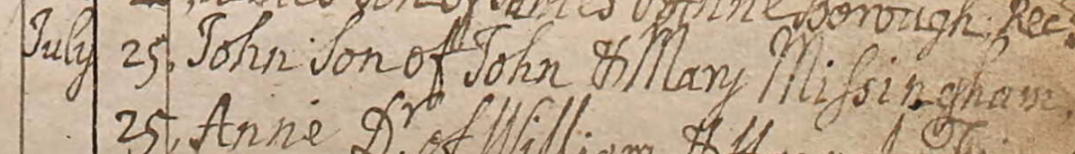 son of James & Anne Borough. Rec.^d
July 25. John Son of John & Mary Missingham.
25. Anne D^r. of William &